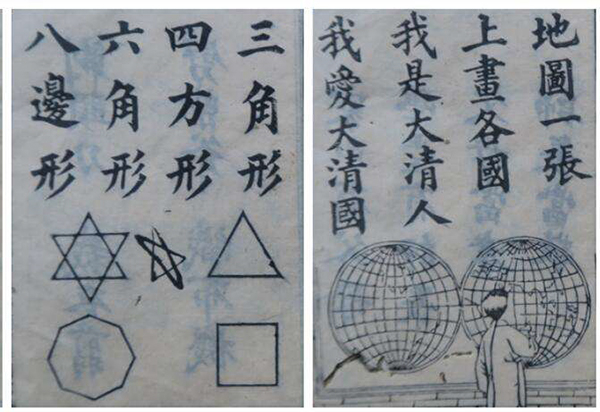 三角形
四方形
六角形
八邊形
地圖一張
上畫各國
我是大清人
我愛大清國